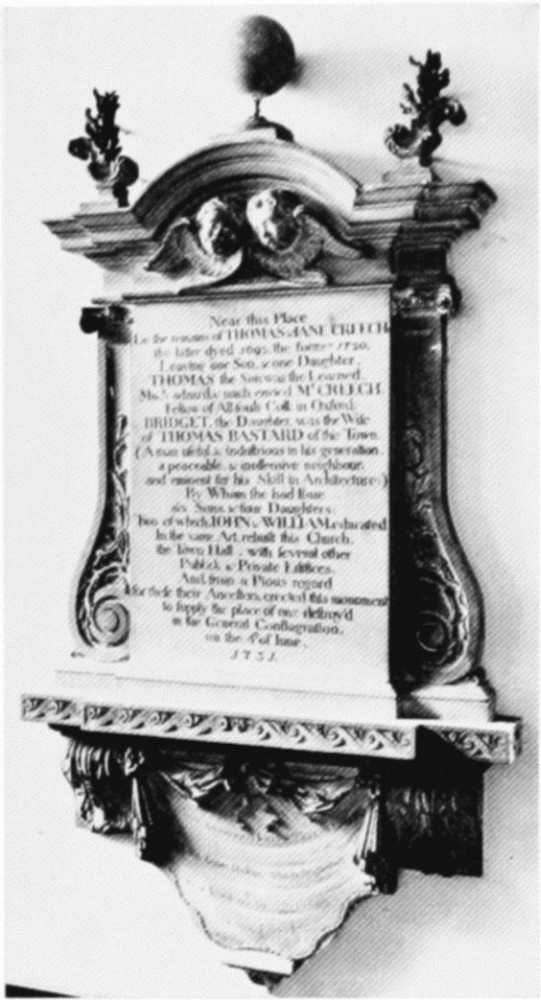 Near this Place
Lie the remains of THOMAS & JANE CREECH
the later dyed 1693, the former 1720.
Leaving one Son, & one Daughter.
THOMAS the Son was the Learned,
Much admired, & much envied Mr. CREECH.
Fellow of All souls Coll: in Oxford.
BRIDGET, the Daughter, was the Wife
of THOMAS BASTARD of the Town.
(A man useful & industrious in his generation.
a peaceable & inoffensive neighbour,
and eminent for his Skill in Architecture:)
By Whom she had Issue
six Sons, & four Daughters:
Two of which JOHN & WILLIAM, educated
In the same Art, rebuilt this Church,
the Town Hall, with several other
Publick & Private Edifices.
And from a Pious regard
for these their Ancestors, erected this monument
to supply the place of one destroy'd
in the General Conflagration,
on the 4th of June,
1731.